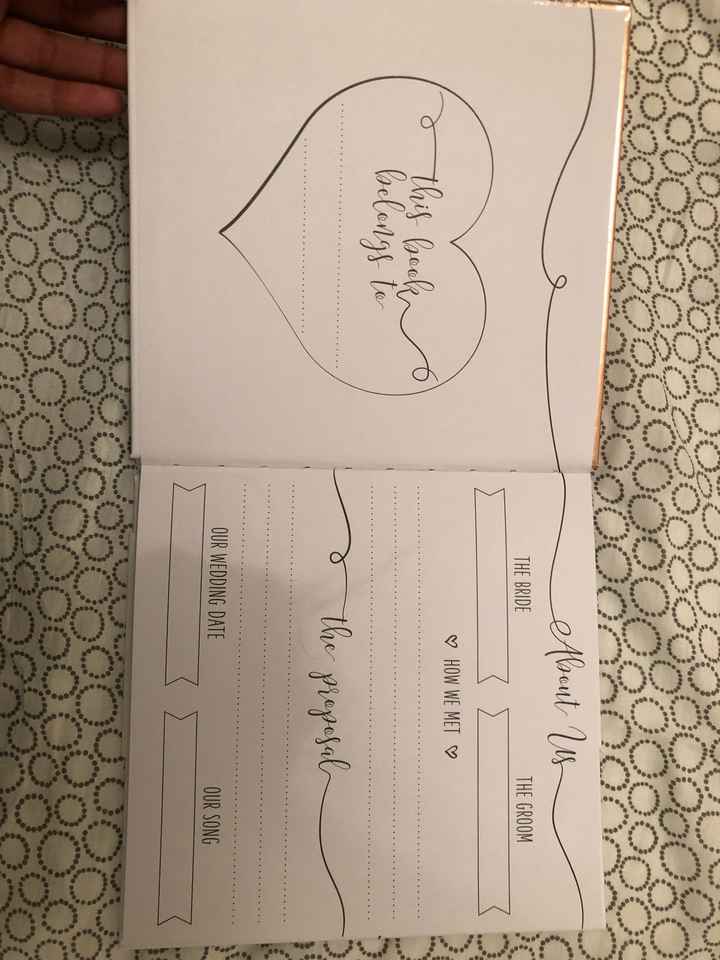 this book
belongs to
About Us
THE BRIDE
THE GROOM
HOW WE MET
the proposal
OUR WEDDING DATE
OUR SONG